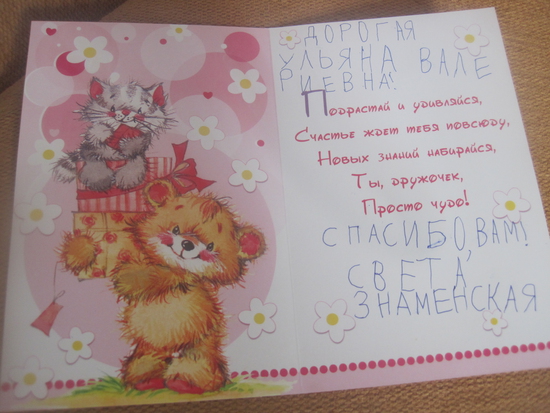 ДОРОГАЯ
УЛЬЯНА ВАЛЕ
РИЕВНА!
Подрастай и удивляйся,
Счастье ждет тебя повсюду,
Новых знаний набирайся,
Ты, дружочек,
Просто чудо!
СПАСИБО ВАМ!
СВЕТА,
ЗНАМЕНСКАЯ